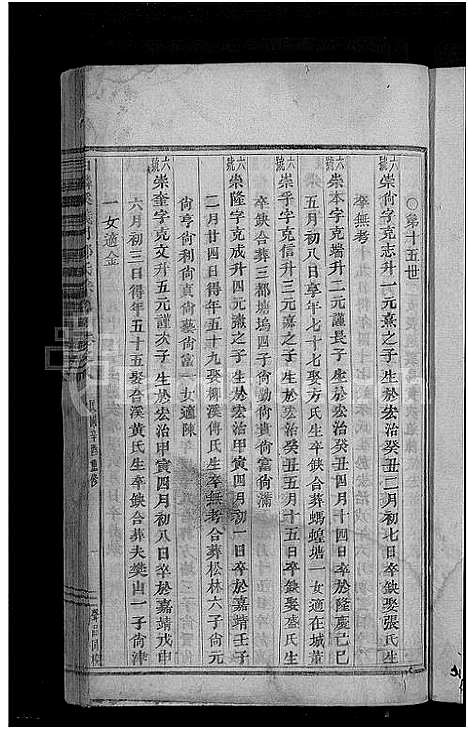 ○第十五世
六號崇尙字克志升一元熹之子生於宏治癸丑二月初七日卒缺娶張氏生
卒無考
六號崇本字克端升二元謹長子生於宏治癸丑四月十四日卒於隆慶己巳
五月初八日享年七十七娶方氏生卒缺合葬螞蝗塘一女適在城董
六號崇孚字克信升三元嘉之子生於宏治癸丑五月十五日卒缺娶盛氏生
卒缺合葬三都塘塢四子尙勛尙清尙富尙滿
六號崇隆字克成升四元之子生於宏治甲寅四月初一日卒於嘉靖壬子
二月廿四日得年五十九娶柳溪傅氏生卒無考合葬松林六子尙元
尙亨尙利尙貞尙藝尙富一女適陳
六號崇奎字克文升五元謹次子生於宏治甲寅四月初八日卒於嘉靖戊申
六月初三日得年五十五娶合溪黃氏生卒缺合葬夫樊山一子尙津
一女適金
民國辛酉重修